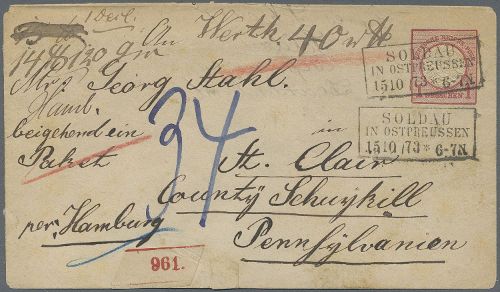 1 Decl.
An Werth. 40 rtl
14 120 gm
Mrs Georg Stahl.
Hamb.
beigehend ein
Paket
in
St. Clair
County Schuylkill
per Hamburg
Pennsylvanien
34
961.
SOLDAU
IN OSTPREUSSEN
15 10 /73 * 6-7N
SOLDAU
IN OSTPREUSSEN
15 10 /73 * 6-7N